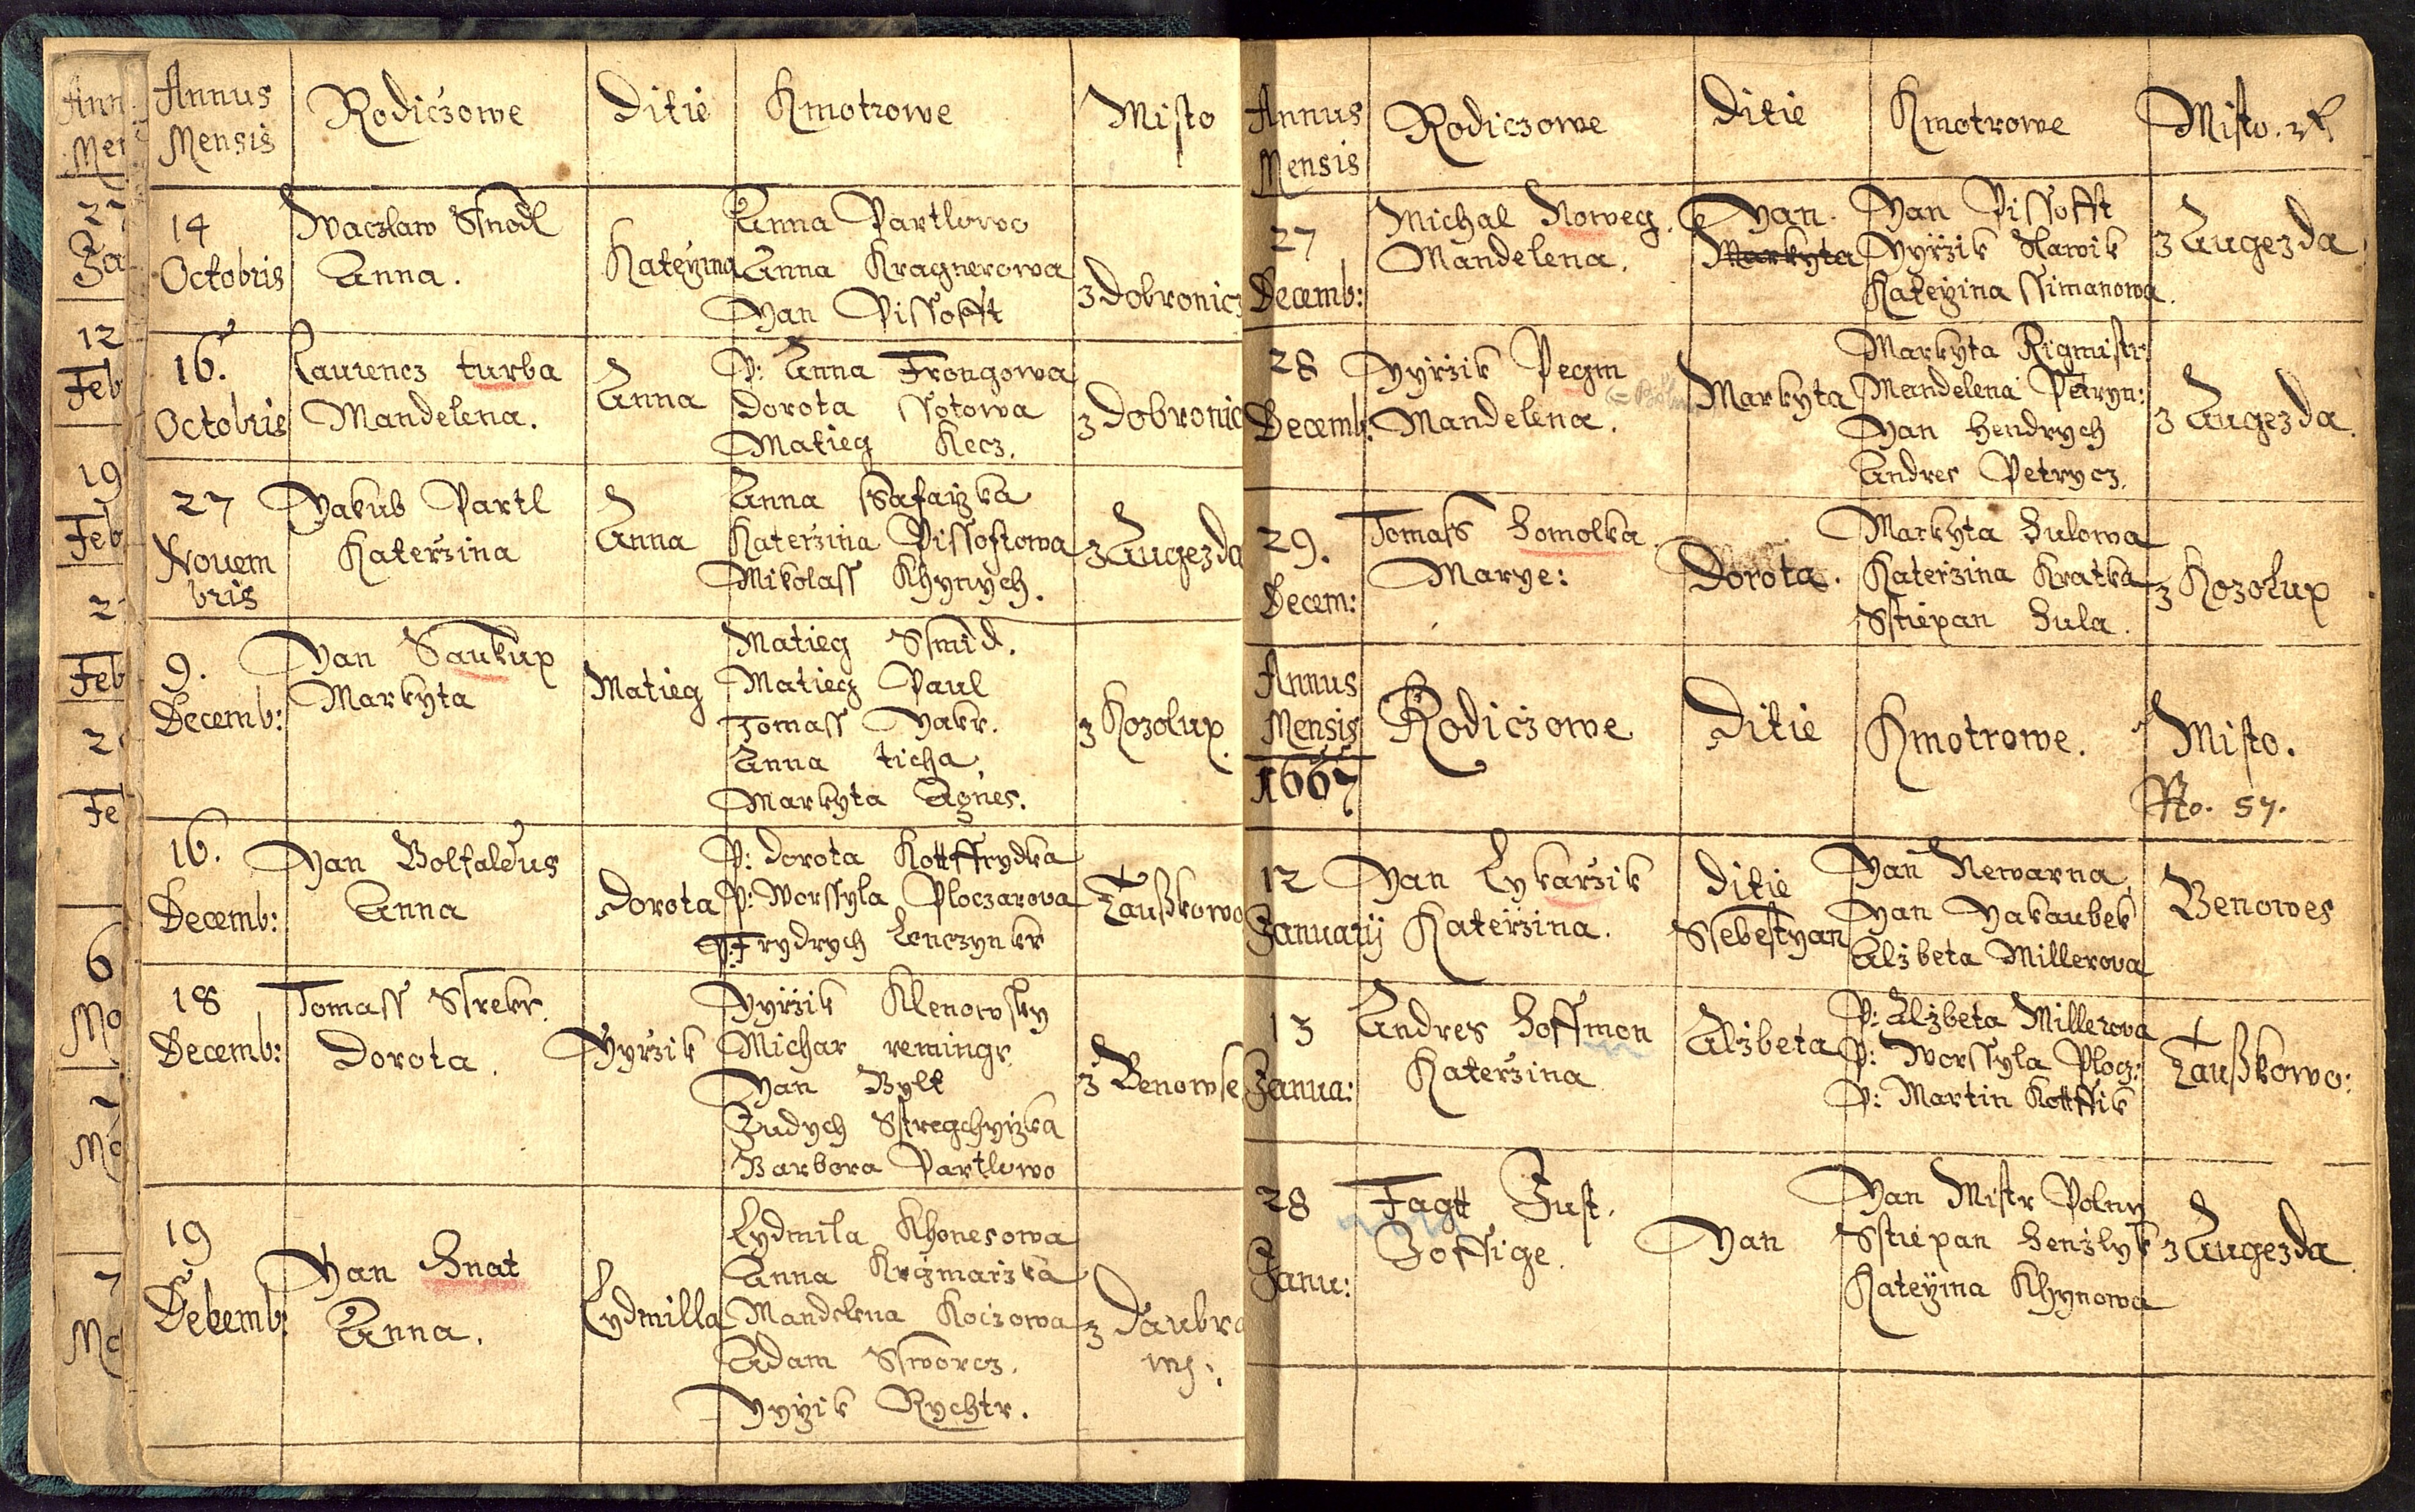 Annus Mensis
Rodiczowe
Ditie
Kmotrowe
Misto
14 Octobris
Waczlaw Sknodl
Anna.
Kateyina
Anna Partlowo
Anna Kragnerowa
Yan Pissofft
z Dobronicz
16. Octobris
Laurencz turba
Mandelena.
Anna
P: Anna Frongowa
Dorota Ssotowa
Matieg Kecz.
z Dobronic
27 Nouem
bris
Yakub Partl
Katerzina
Anna
Anna
Katerzina Pissoftowa
Mikolass Khynych.
z Augezda
9. Decemb:
Yan Saukup
Markyta
Matieg
Matieg Smid.
Matieg Paul
Tomass Yakr.
Anna ticha
Markyta Agnes.
z Kozolup.
16. Decemb:
Yan Bolfaldus
Anna
Dorota
P: Dorota Kottffrydka
P: Worssyla Ploczarova
P: Frydrych Lenczynkr
Laußkowo
18 Decemb:
Tomass Strekr.
Dorota.
Yyrzik
Yyrzik Klenowsky
Michar remingr
Yan Bylt
Judych Stregchyrzka
Barbora Partlowo
z Benowse
19 Debemb:
Yan Hnat
Anna.
Lydmilla
Lydmila Khonesowa
Anna Krczmarzka
Mandelena Koczowa
Adam Sworcz.
Yyrzik Rychtr.
z Daubra
Annus Mensis
Rodiczowe
Ditie
Kmotrowe
Misto.
27 Decemb:
Michal Noweg.
Mandelena.
Yan.
Markyta
Yan Pissofft
Yyrzik Slawik
Kateyina Ssimanowa.
z Augezda
28 Decemb:
Yyrzik Pegm
Mandelena.
Markyta
Markyta Rigmistr
Mandelena Petryn:
Yan Hendrych
Andres Petrycz.
z Augezda.
29. Decem:
Tomass Homolka.
Marye:
Dorota.
Markyta Hulowa
Katerzina Kratka
Sstiepan Hula.
z Kozolup
Annus
Mensis
1667
Rodiczowe
Ditie
Kmotrowe.
Misto.
No. 57.
12 January
Yan Lykarzik
Katerzina.
Ditie
Ssebestyan
Yan Newarna
Yan Yakaubek
Alzbeta Millerova
Benowes
13 Janua:
Andres Hoffmon
Katerzina
Alzbeta
P: Alzbeta Millerova
P: Worssyla Plocz:
P: Martin Kottffik
Laußkowo:
28 Janu:
Fagtt Just.
Zoffige.
Yan
Yan Mistr Polny
Sstiepan Henzlyk
Kateyina Khynowa
z Augezda